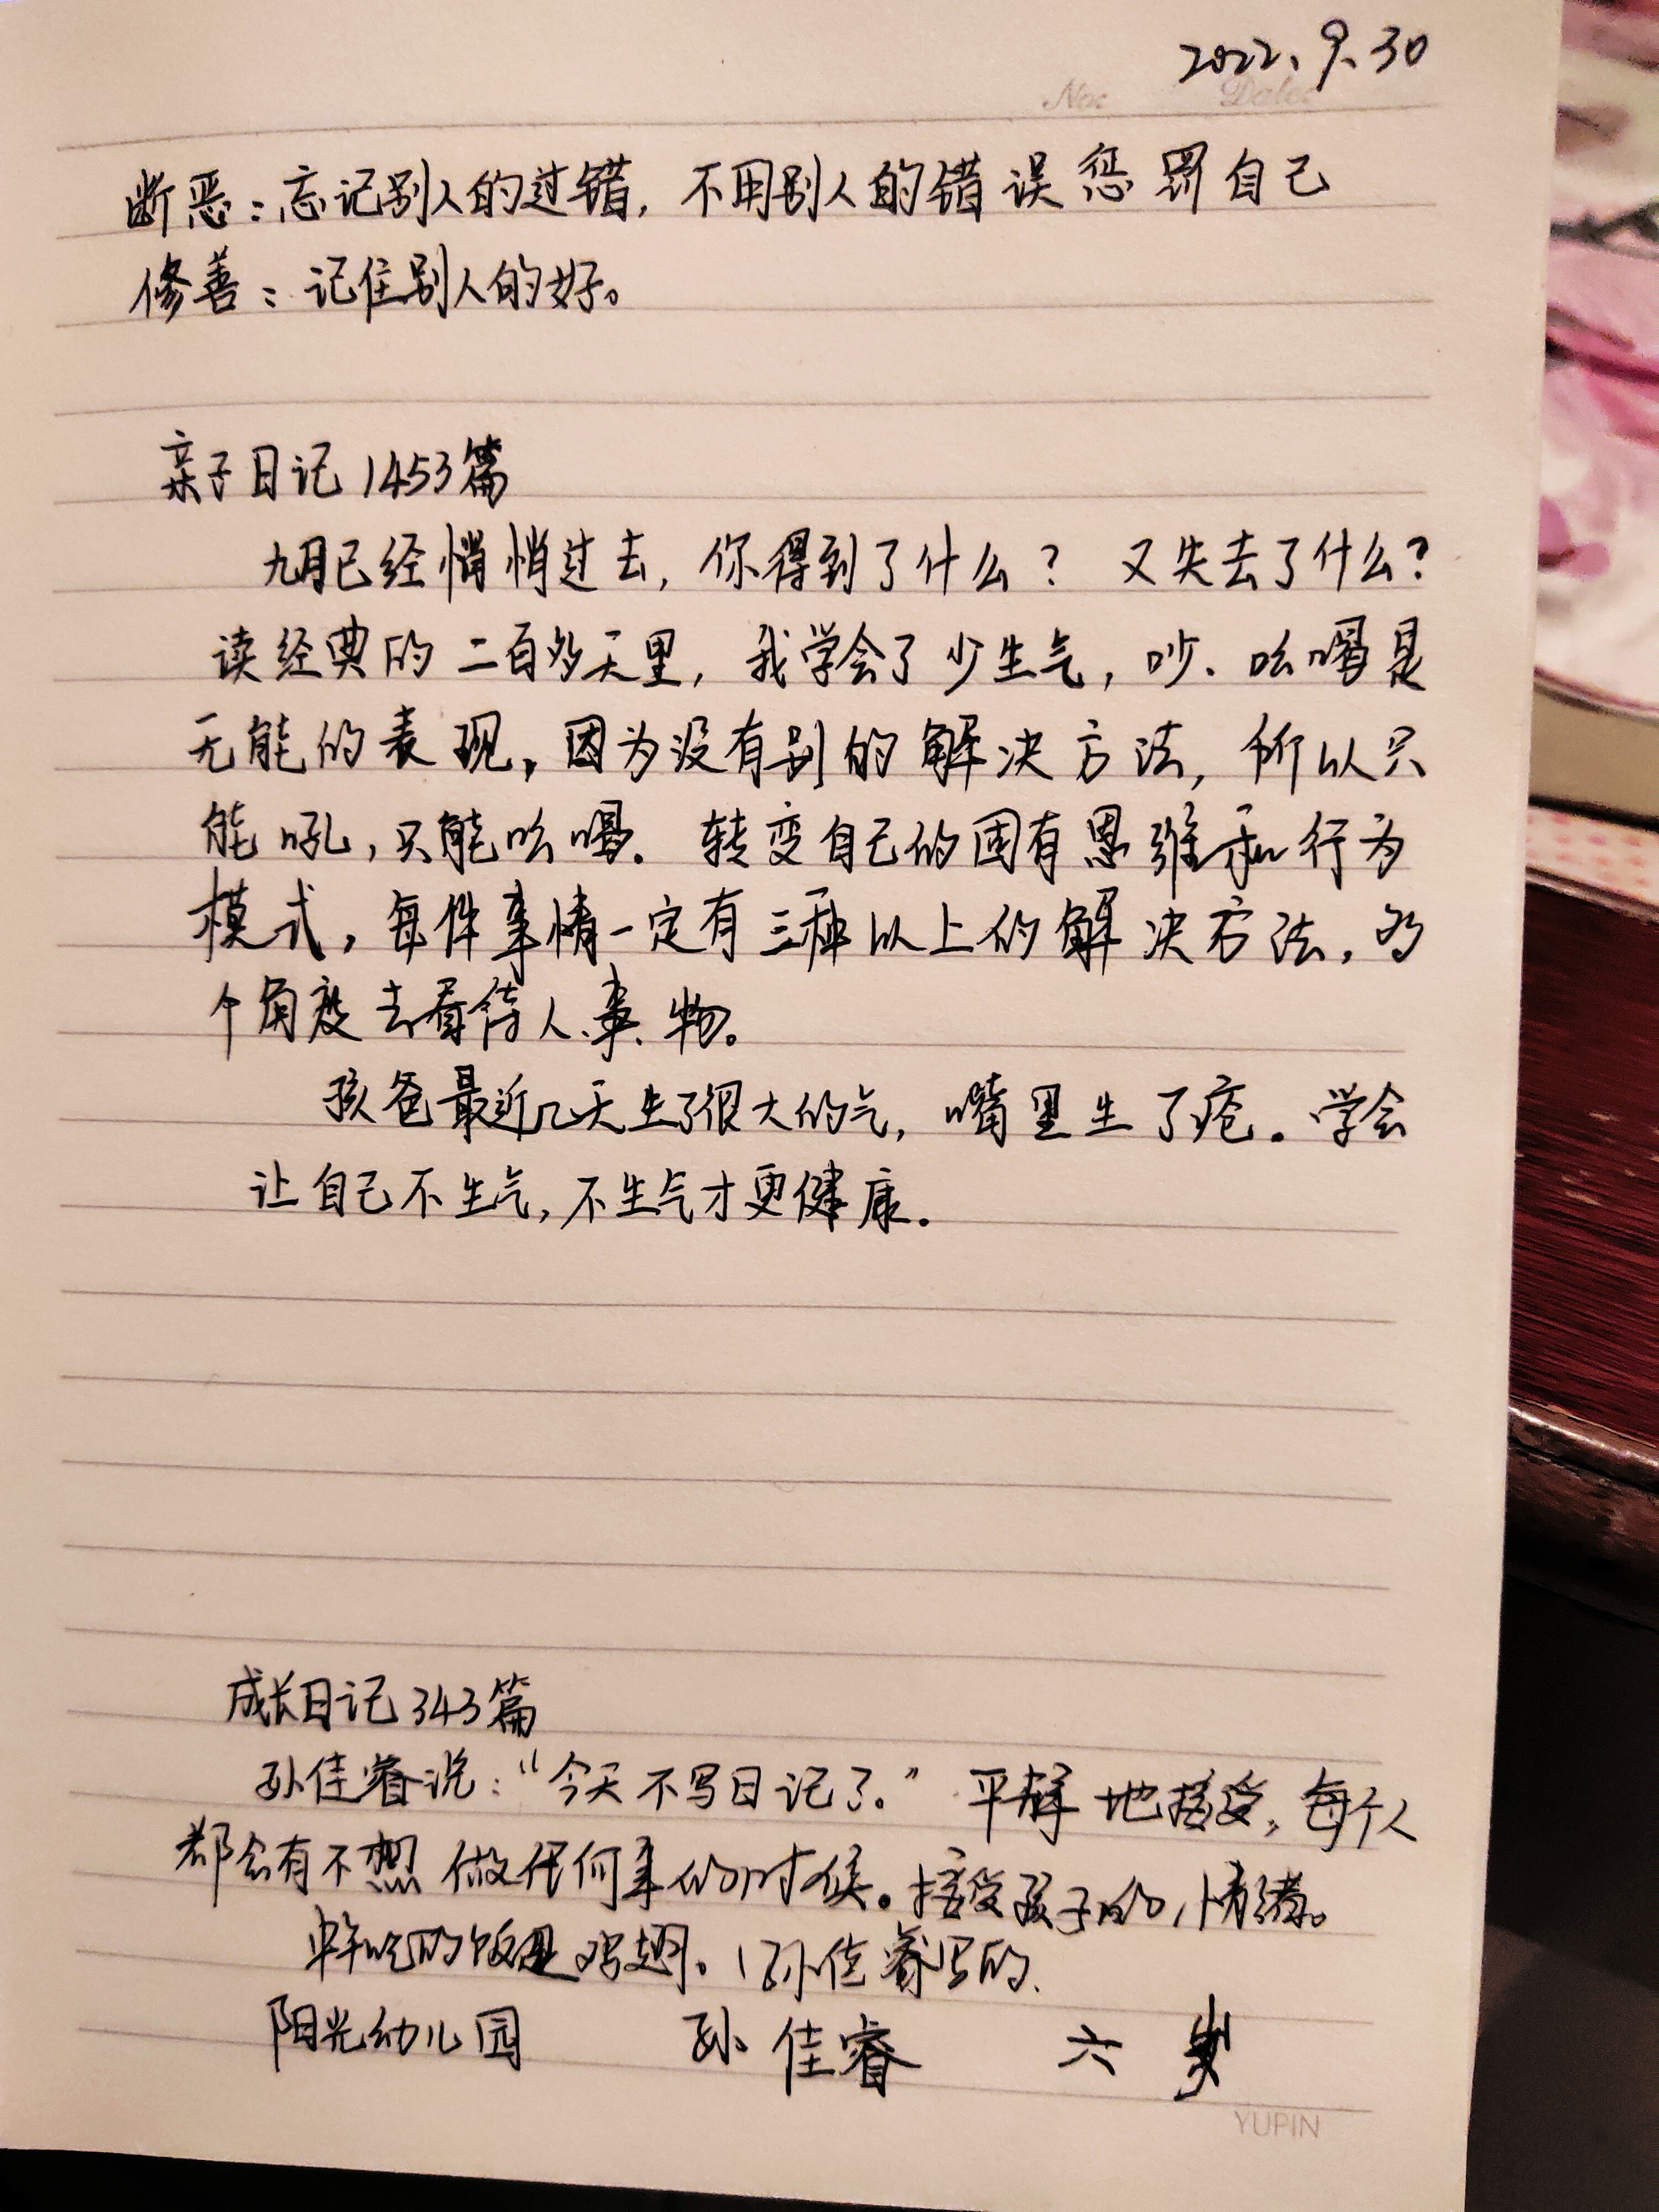 2022.9.30
No:
Date:
断恶：忘记别人的过错，不用别人的错误惩罚自己
修善：记住别人的好。
亲子日记1453篇
九月已经悄悄过去，你得到了什么？又失去了什么？
读经典的二百多天里，我学会了少生气，吵、吆喝是
无能的表现，因为没有别的解决方法，所以只
能吼，只能吆喝。转变自己的固有思维和行为
模式，每件事情一定有三种以上的解决方法，多
个角度去看待人、事、物。
孩爸最近几天生了很大的气，嘴里生了疮。学会
让自己不生气，不生气才更健康。
成长日记343篇
孙佳睿说：“今天不写日记了。”平静地接受，每个人
都会有不想做任何事的时候。接受孩子的情绪。
中午吃的饭是鸡翅。(孙佳睿写的.
阳光幼儿园 孙佳睿 六岁
YUPIN